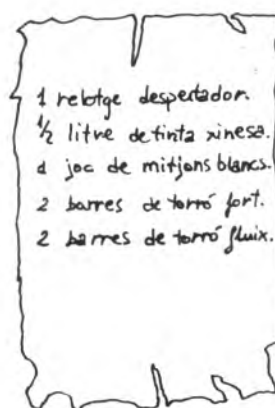 1 relotge despertador.
½ litre de tinta xinesa.
1 joc de mitjons blancs.
2 barres de torró fort.
2 barres de torró fluix.